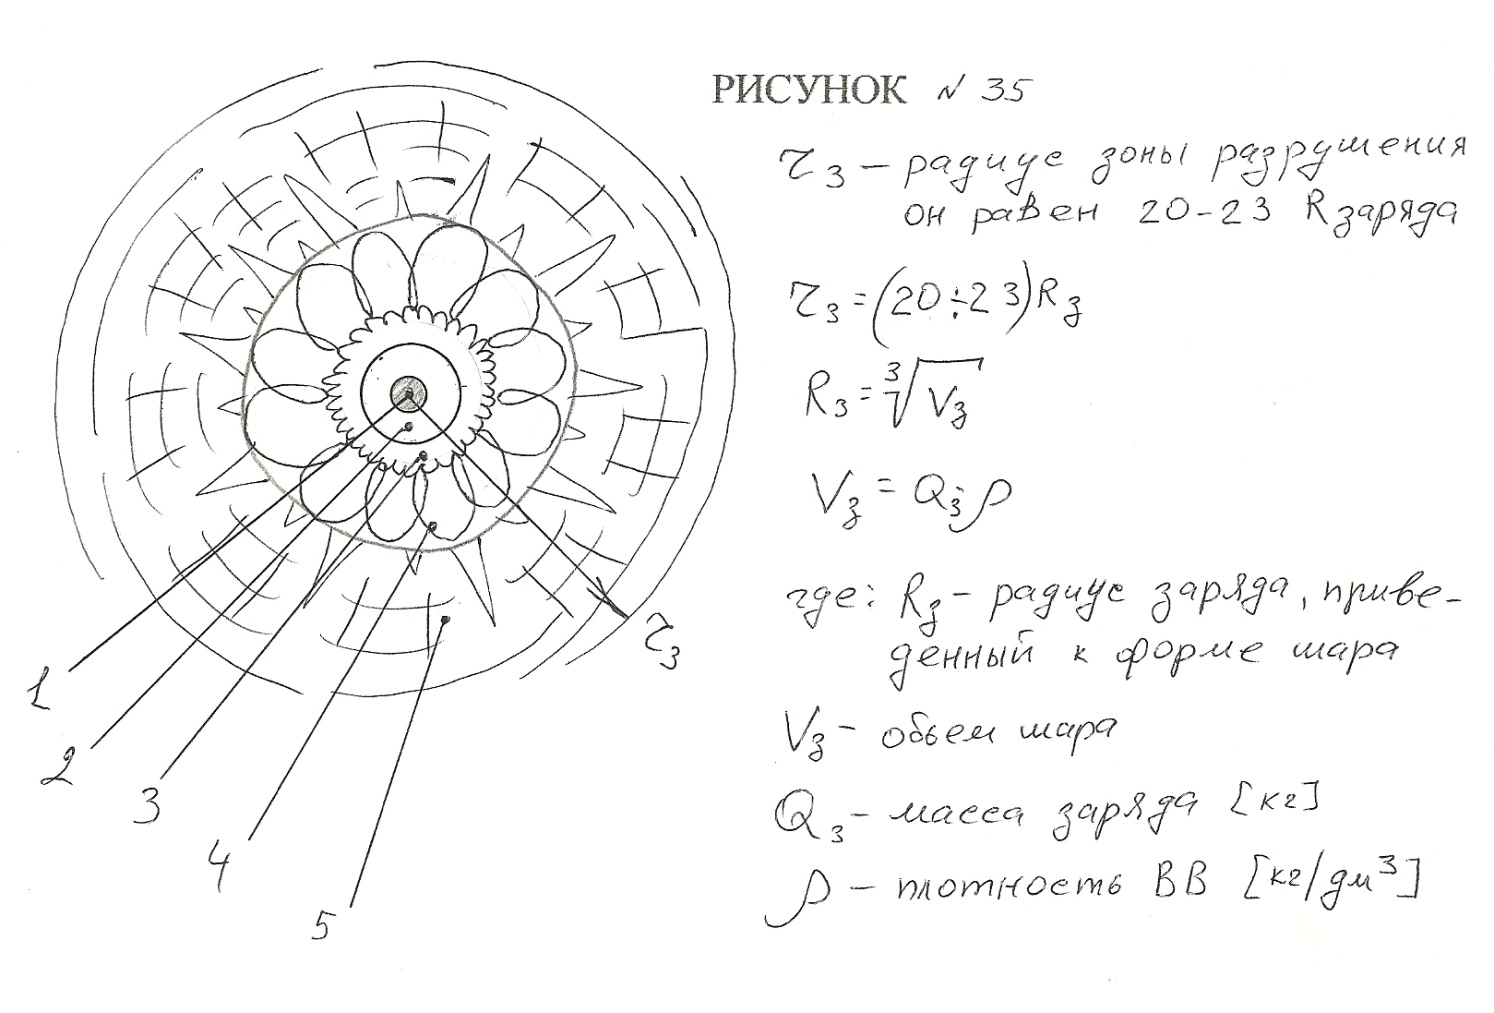 РИСУНОК № 35
r₃ – радиус зоны разрушения
он равен 20-23 R заряда
r₃ = (20÷23) R₃
R₃ = ³√V₃
V₃ = Q₃ ÷ ρ
где: R₃ – радиус заряда, приве-
денный к форме шара
V₃ – обьем шара
Q₃ – масса заряда [кг]
ρ – плотность ВВ [кг/дм³]
r₃
1
2
3
4
5